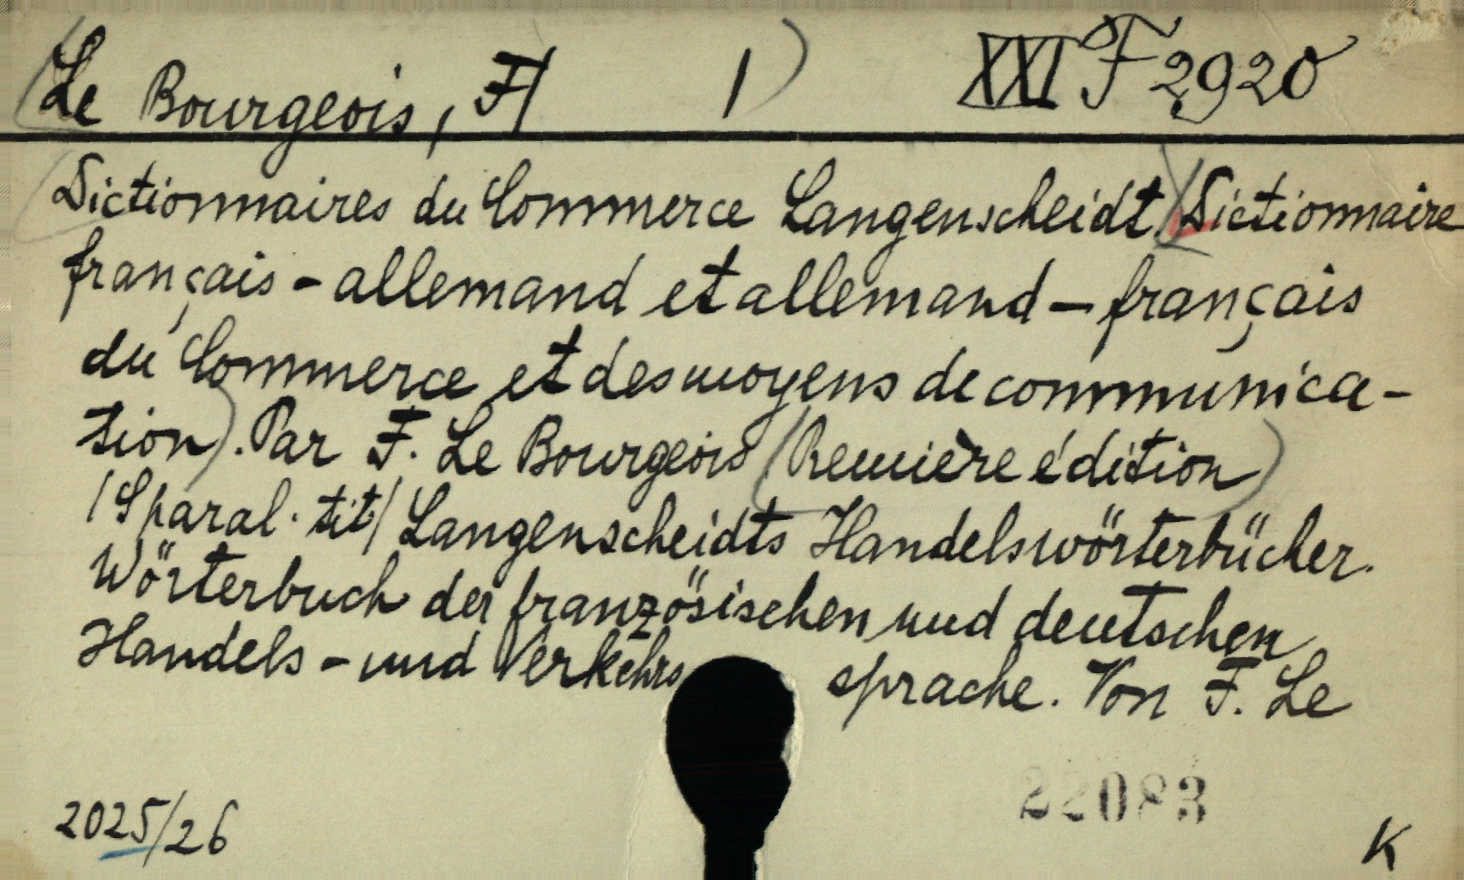 (Le Bourgeois, F/ 1) XXI F 2920
(Dictionnaires du Commerce Langenscheidt.) Dictionnaire
français - allemand et allemand - français
du Commerce et des moyens de communica-
tion). Par F. Le Bourgeois (Première édition)
/Sparal. tit/ Langenscheidts Handelswörterbücher.
Wörterbuch der französischen und deutschen
Handels - und Verkehrs sprache. Von F. Le
22083
2025/26
K